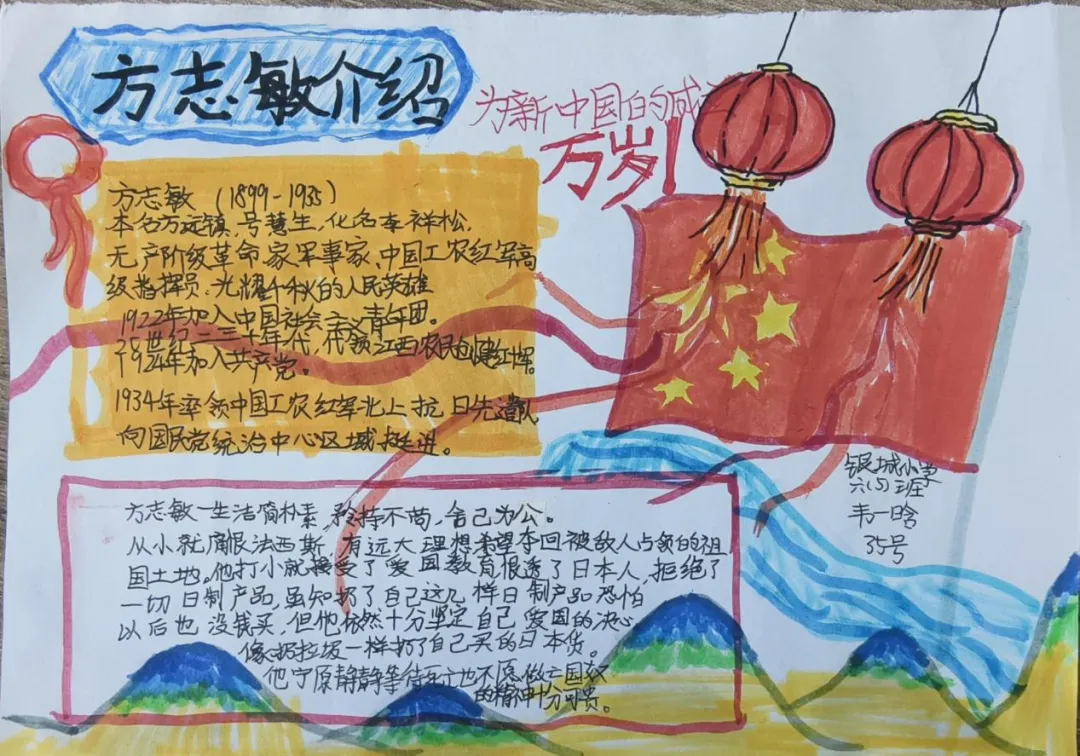 方志敏介绍
为新中国的成
万岁！
方志敏（1899-1935）
本名方远镇，号慧生，化名李祥松，
无产阶级革命家、军事家、中国工农红军高
级指挥员、光耀千秋的人民英雄
1922年加入中国社会主义青年团。
20世纪二三十年代，代领江西农民创建红
1924年加入共产党。
1934年率领中国工农红军北上抗日先遣队
向国民党统治中心区域挺进。
方志敏一生活简朴素，矜持不苟，舍己为公。
从小就痛恨法西斯，有远大理想希望夺回被敌人占领的祖
国土地。他打小就接受了爱国教育，恨透了日本人，拒绝了
一切日制产品，虽知扔了自己这几样日制产品恐怕
以后也没钱买，但他依然十分坚定自己爱国的决心
像扔垃圾一样扔了自己买的日本货。
他宁愿静静等待死亡也不愿做亡国奴
的精神十分可贵。
银城小学
六(5)班
韦一晗
35号